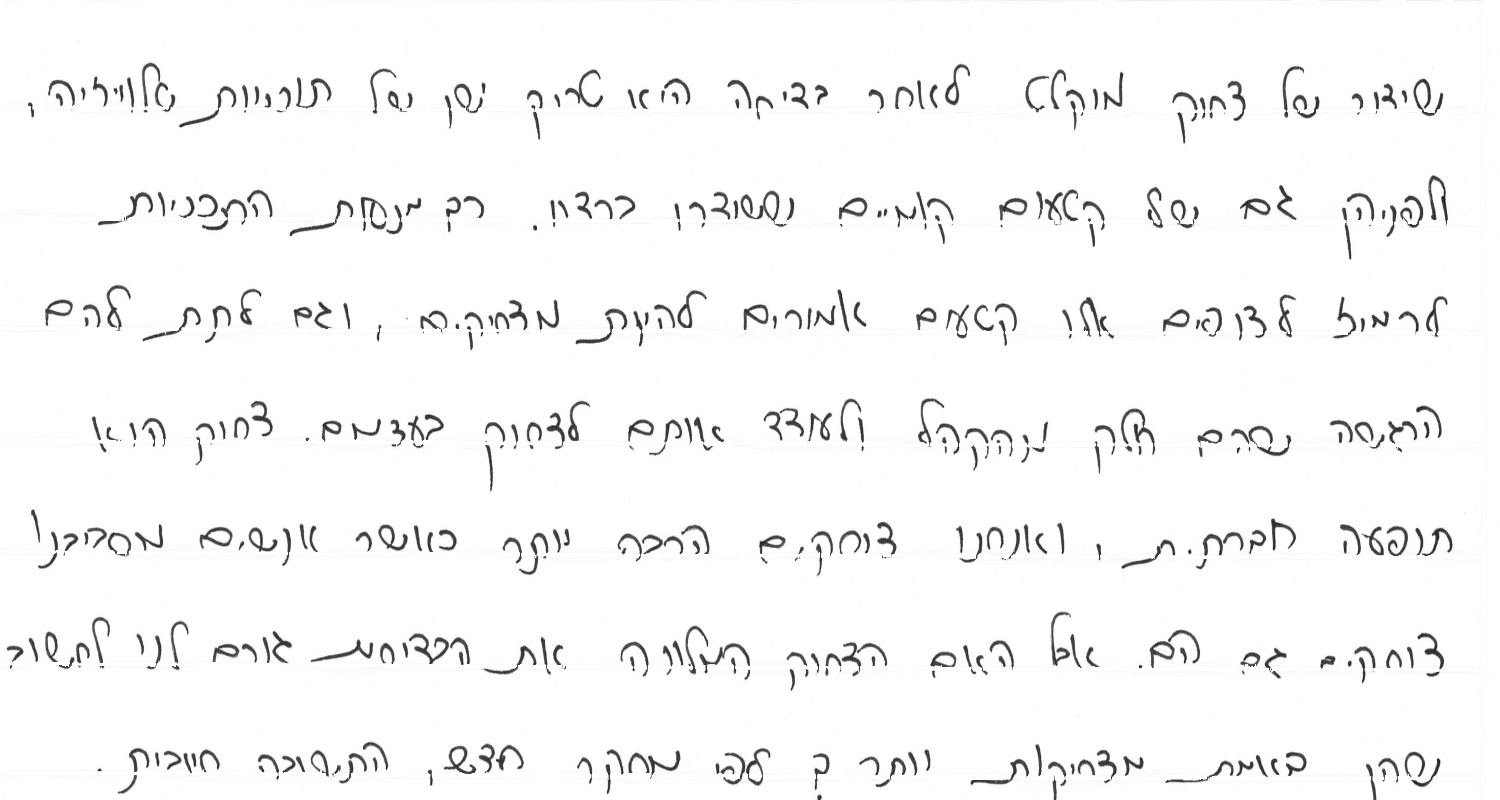 שידור של צחוק מוקלט לאחר בדיחה היא טריק ישן של תוכניות טלוויזיה,
ולפניהן גם של קטעים קומיים ששודרו ברדיו. כך מנסות התכניות
לרמוז לצופים אלו קטעים אמורים להיות מצחיקים, וגם לתת להם
הרגשה שהם חלק מהקהל ולעודד אותם לצחוק בעצמם. צחוק הוא
תופעה חברתית, ואנחנו צוחקים הרבה יותר כאשר אנשים מסביבנו
צוחקים גם הם. אבל האם הצחוק המלווה את הבדיחות גורם לנו לחשוב
שהן באמת מצחיקות יותר? לפי מחקר חדש, התשובה חיובית.